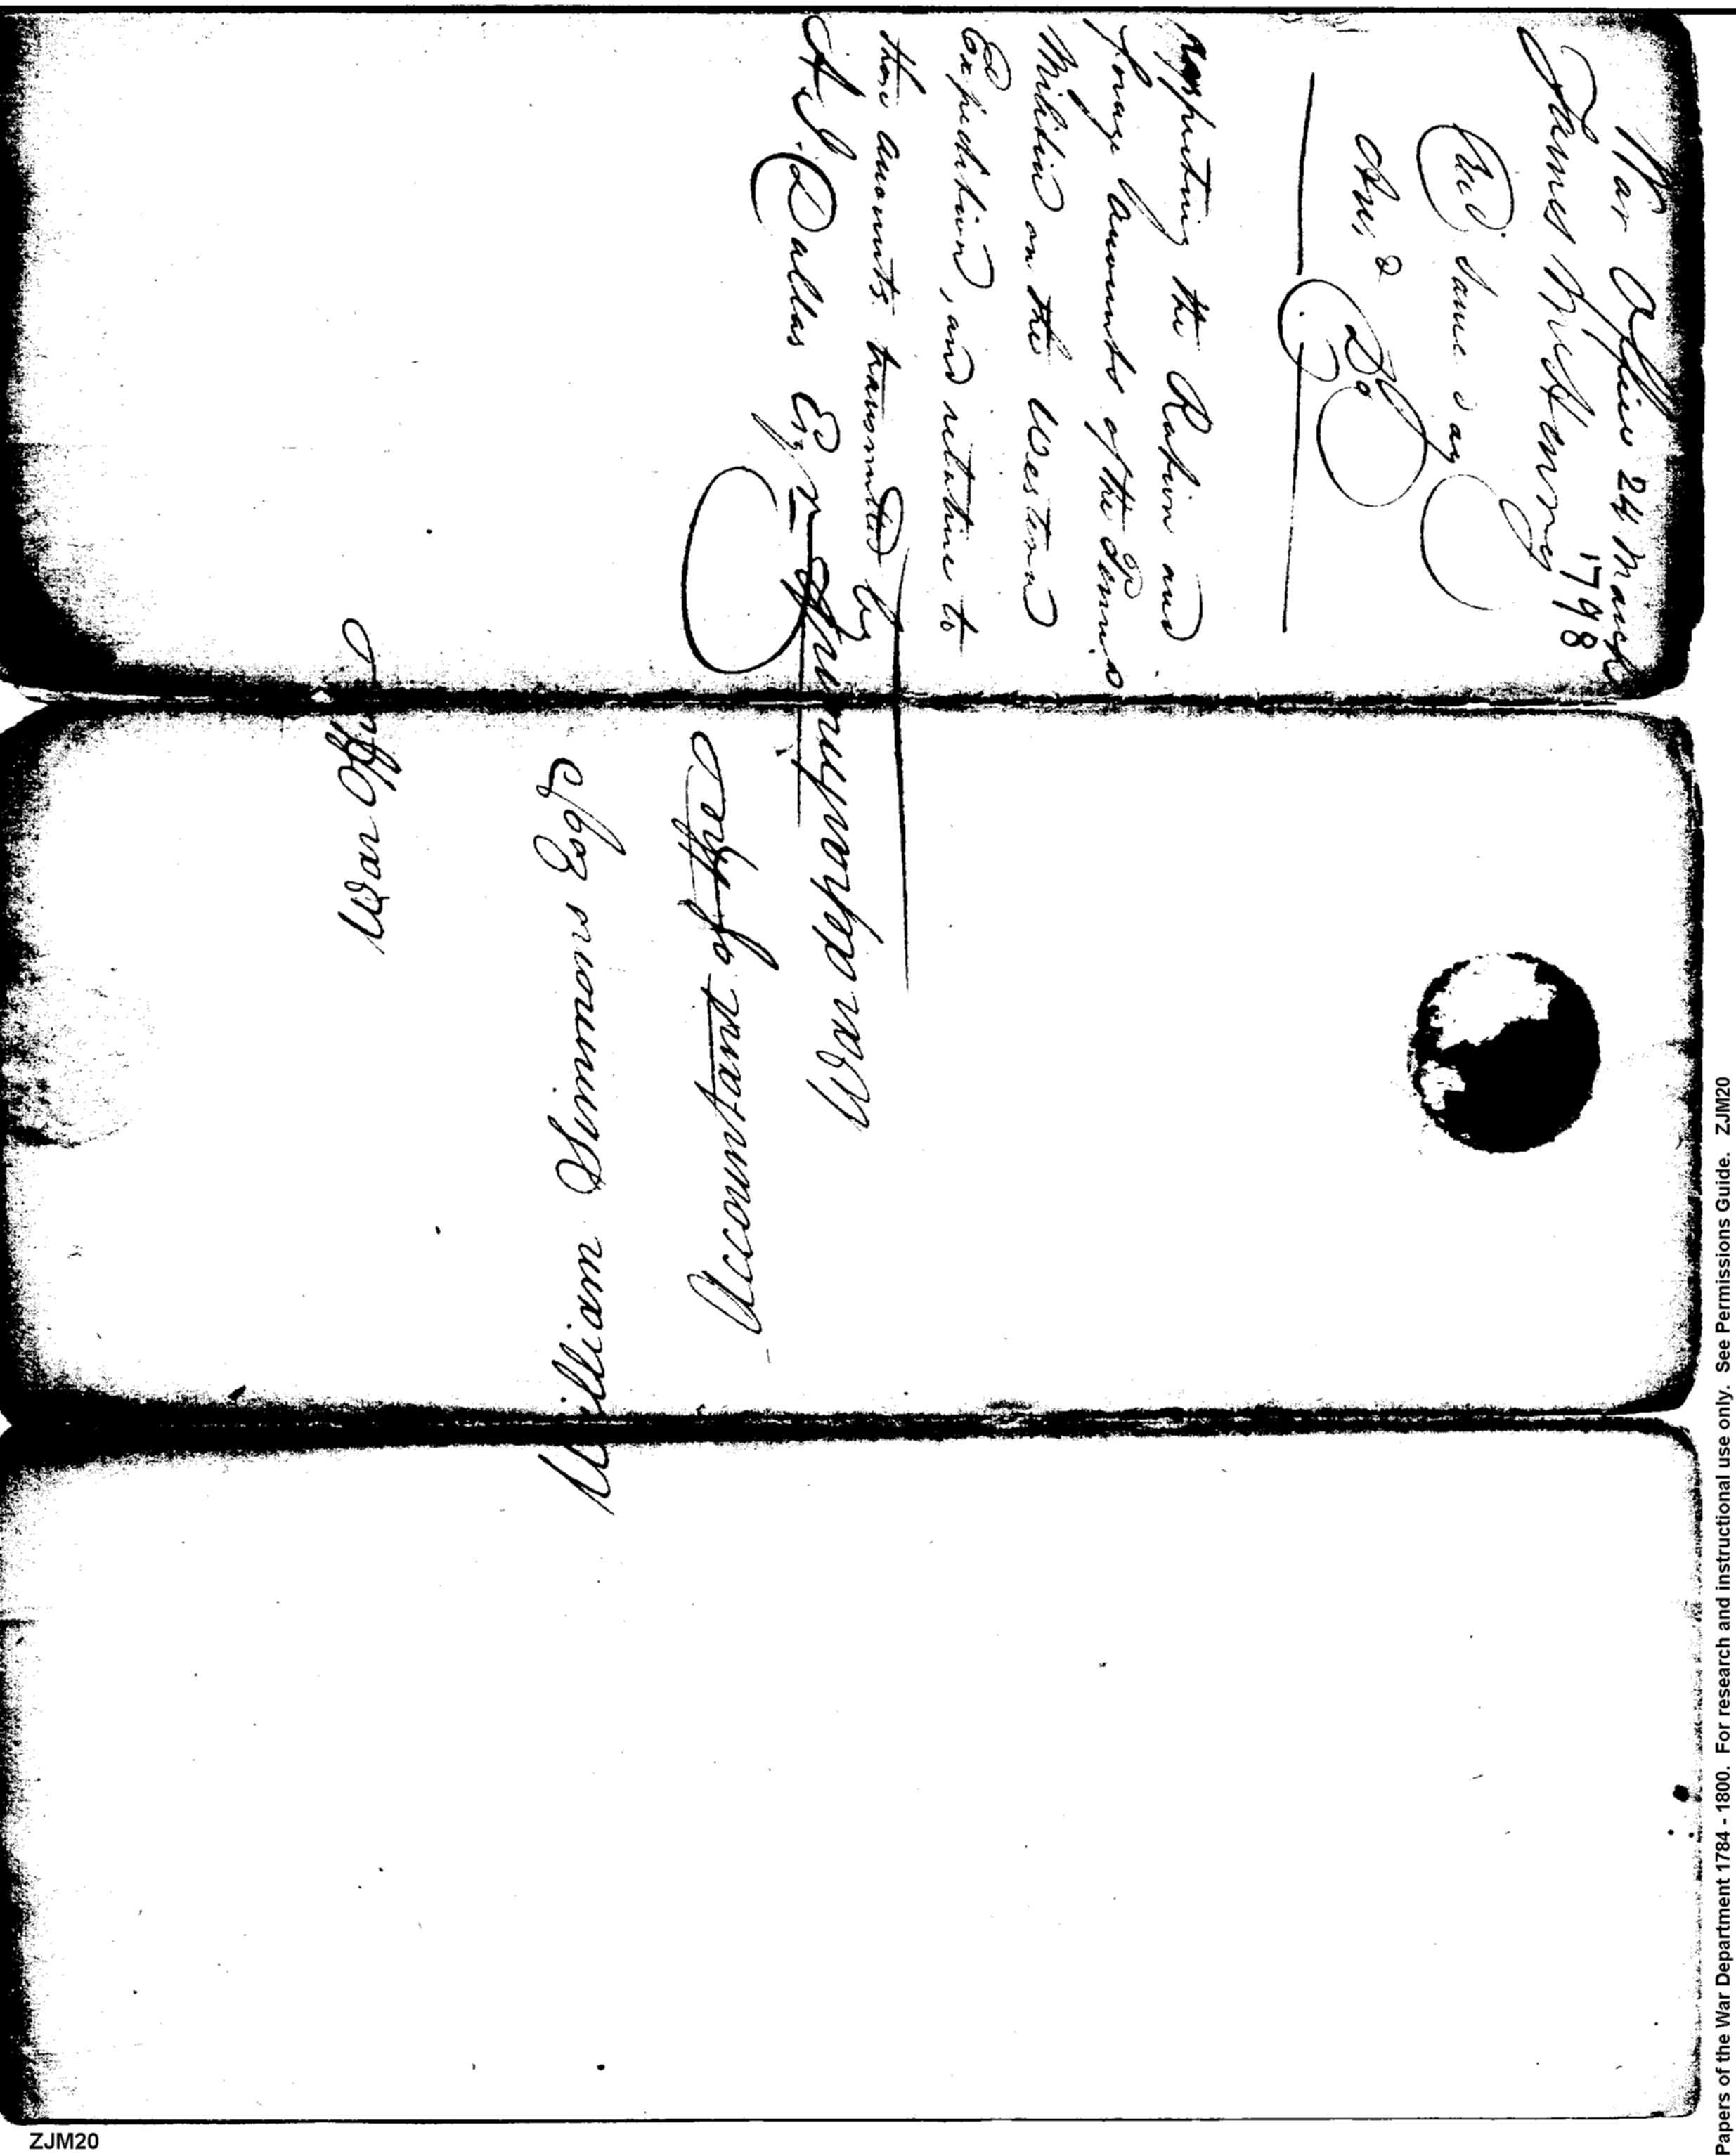 War Office 24 March
1798
James McHenry
Recd. Same day
Ansd Do
respecting the Ration and
forage accounts of the Penns.a
Militia on the Western
Expedition, and relative to
those accounts transmitted by
A. J. Dallas Esqr
War Off
William Simmons Esqr
Accountant of the
War department
Papers of the War Department 1784 - 1800. For research and instructional use only. See Permissions Guide. ZJM20
ZJM20